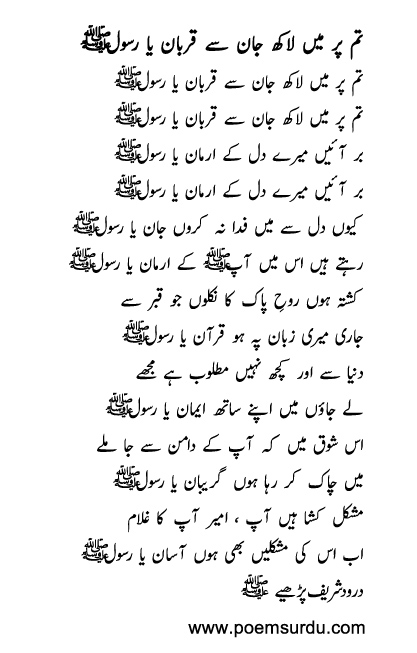 تم پر میں لاکھ جان سے قربان یا رسولﷺ
تم پر میں لاکھ جان سے قربان یا رسولﷺ
تم پر میں لاکھ جان سے قربان یا رسولﷺ
بر آئیں میرے دل کے ارمان یا رسولﷺ
بر آئیں میرے دل کے ارمان یا رسولﷺ
کیوں دل سے میں فدا نہ کروں جان یا رسولﷺ
رہتے ہیں اس میں آپﷺ کے ارمان یا رسولﷺ
کشتہ ہوں روحِ پاک کا نکلوں جو قبر سے
جاری میری زبان پہ ہو قرآن یا رسولﷺ
دنیا سے اور کچھ نہیں مطلوب ہے مجھے
لے جاؤں میں اپنے ساتھ ایمان یا رسولﷺ
اس شوق میں کہ آپ کے دامن سے جا ملے
میں چاک کر رہا ہوں گریبان یا رسولﷺ
مشکل کشا ہیں آپ ، امیر آپ کا غلام
اب اس کی مشکلیں بھی ہوں آسان یا رسولﷺ
درود شریف پڑھیے ﷺ
www.poemsurdu.com